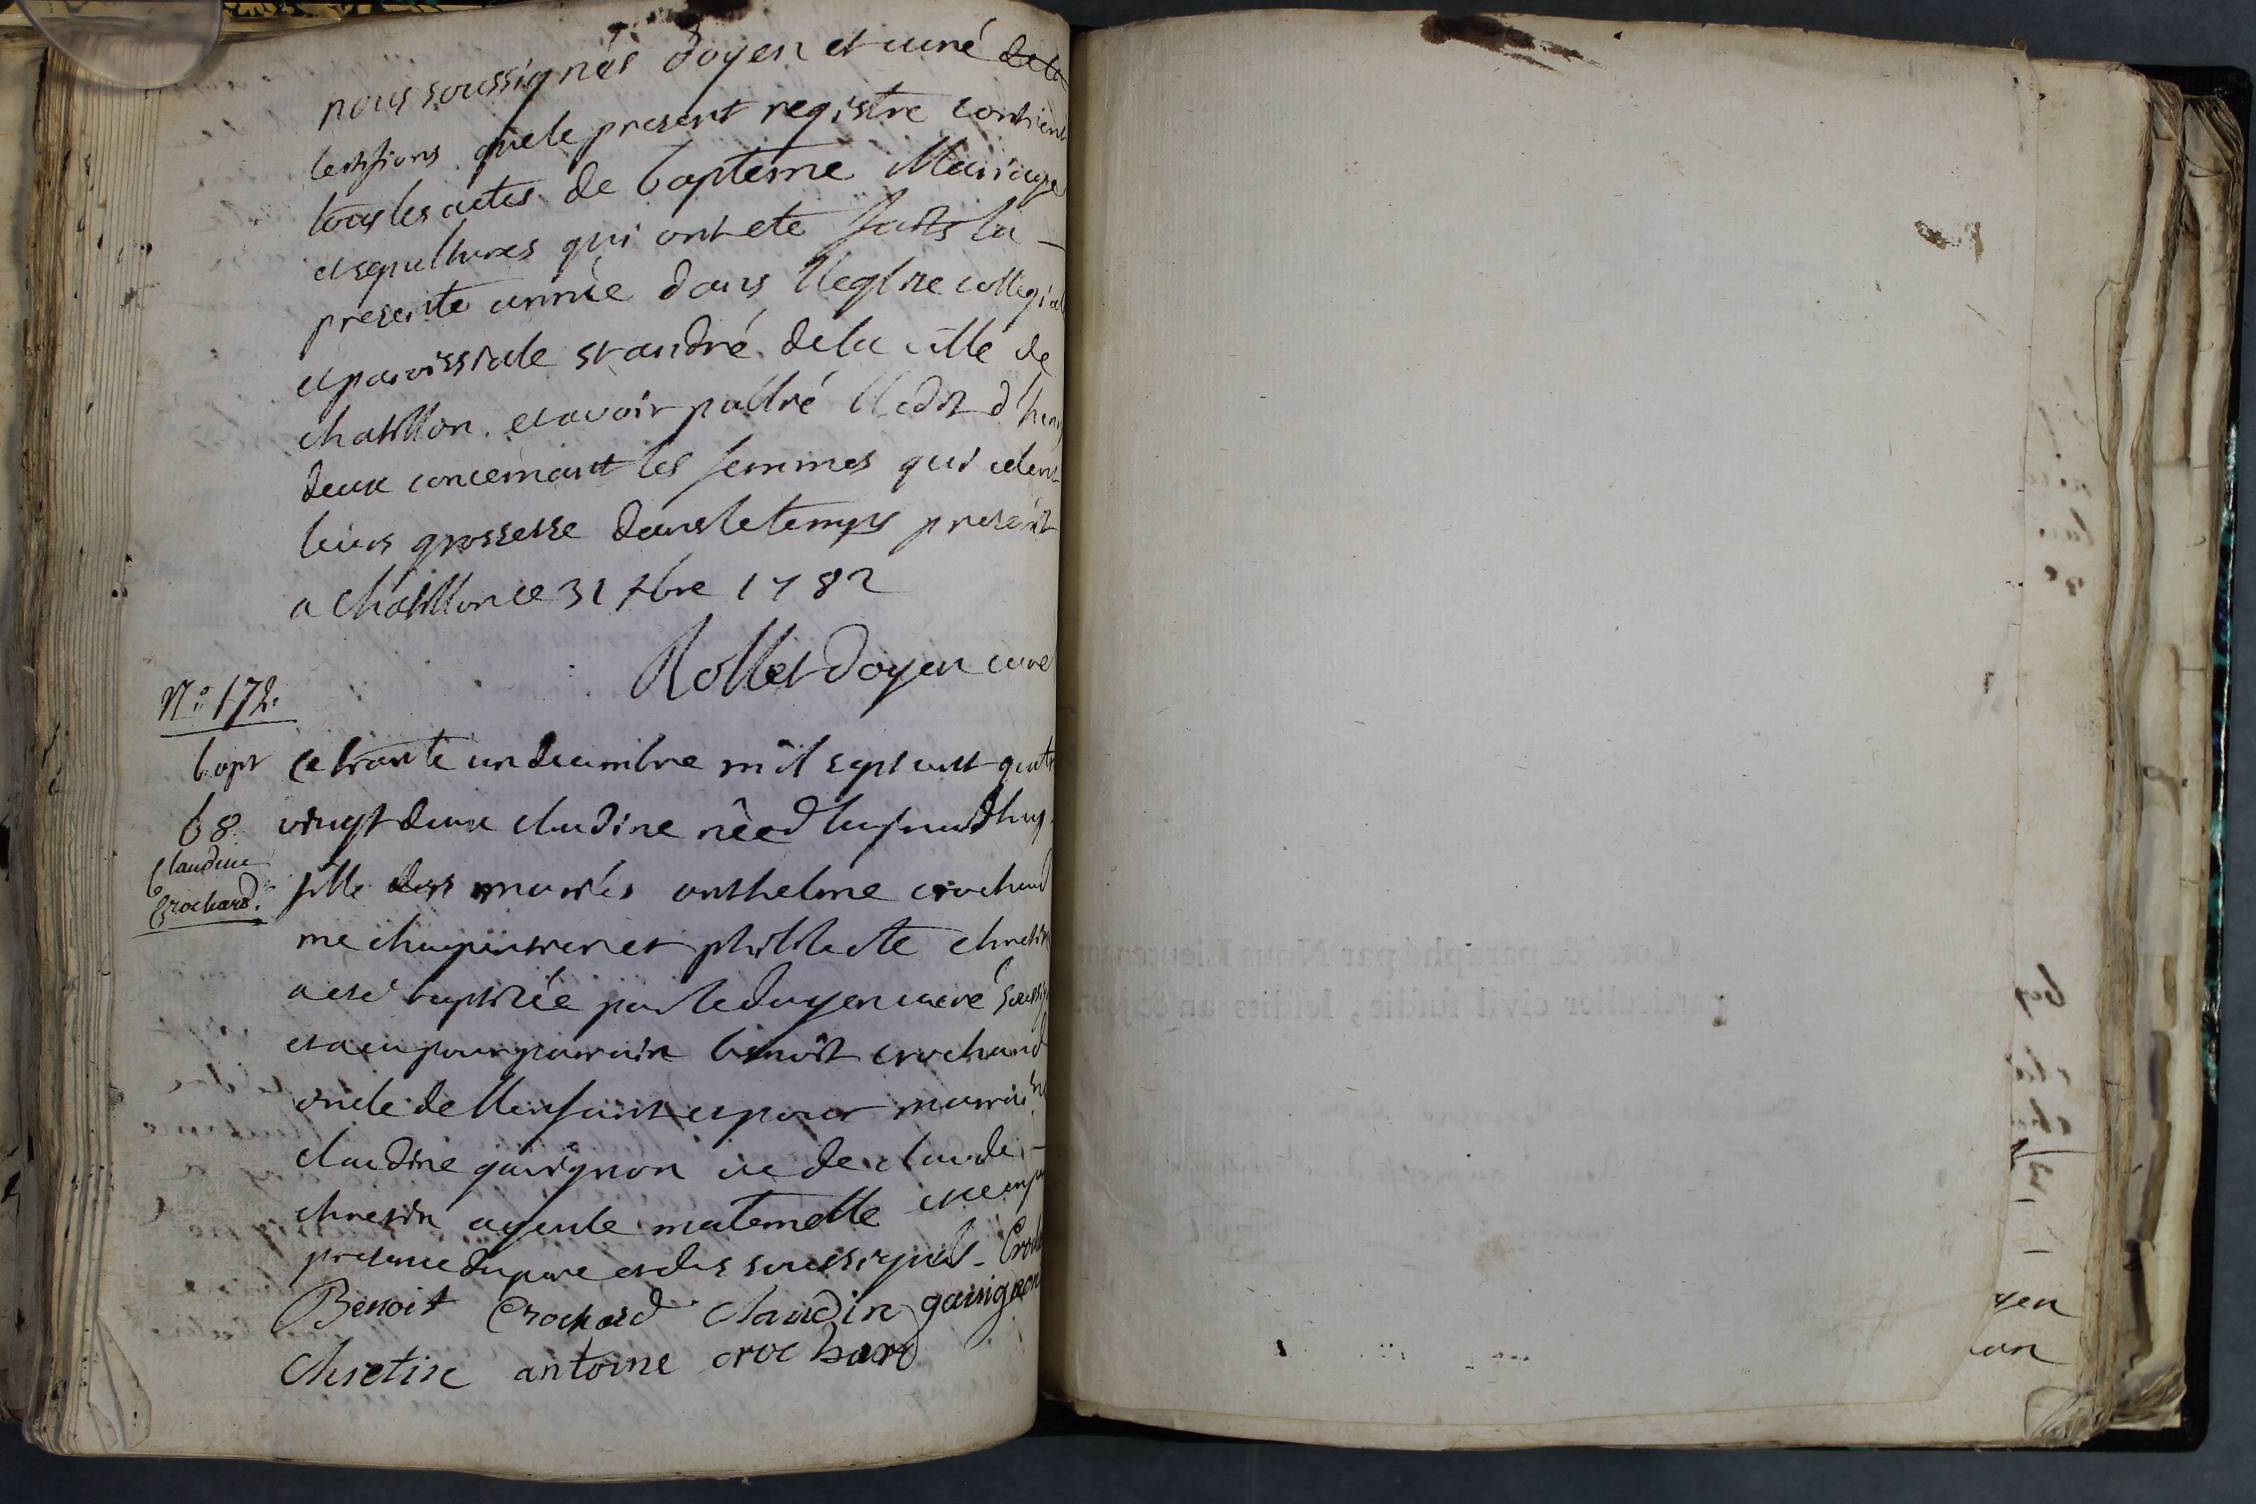 nous soussignés doyen et curé de la
certifions que le present registre contient
tous les actes de bapteme Mariage
et sepultures qui ont ete faits la
presente année dans l'eglise collegiale
et paroissiale st andré de la ville de
chatillon. et avoir publié l'edit d'henry
deux concernant les femmes qui celent
leurs grossesse dans le temps present
a chatillon ce 31 xbre 1782
Rollet doyen curé
N.º 172.
bapt
68
Claudine
Crochard.
Ce trante un decembre mil sept cent quatre
vingt deux claudine née d'aujourdhuy
fille des mariés anthelme crochard
me charpentier et philiberte chretin
a eté baptisée par le doyen curé soussig
et a eu pour parrain benoit crochard
oncle de l'enfant et pour marraine
claudine guignon ve de claude
chretin ayeule maternelle
presence du pere et des soussignés
Benoit Crochard claudin gaingnon
Chretin antoine crochard
Lotté & paraphé par Nous Lieutenant
particulier civil susdit, lesdits an & jour
yen